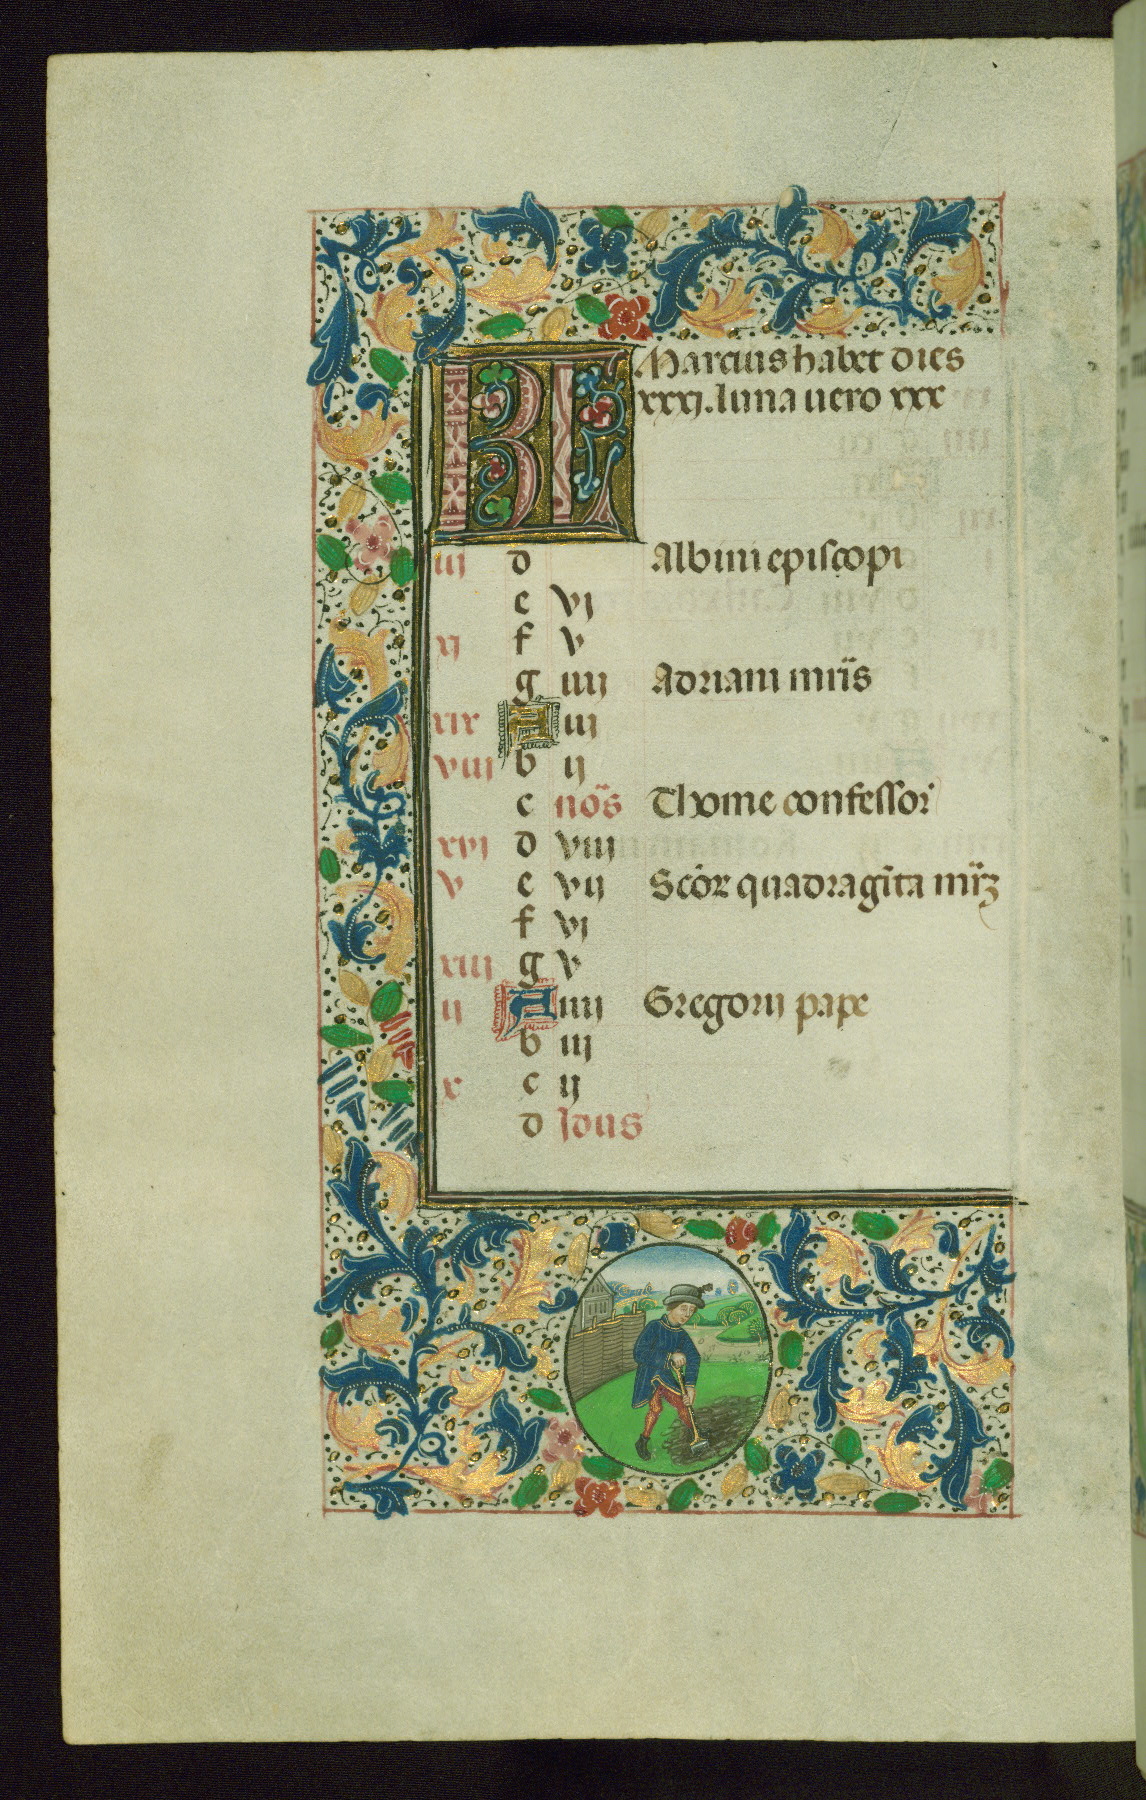 KL Marcius habet dies
xxxj. luna uero xxx
iij d Albini episcopi
e vj
xj f v
g iiij Adriani mr̄is
xix A iij
viij b ij
c nōs Thome confessor̄
xvj d viij
v e vij Scōꝝ quadragīta mr̄ꝝ
f vj
xiij g v
ij A iiij Gregorij pape
b iij
x c ij
d Idus